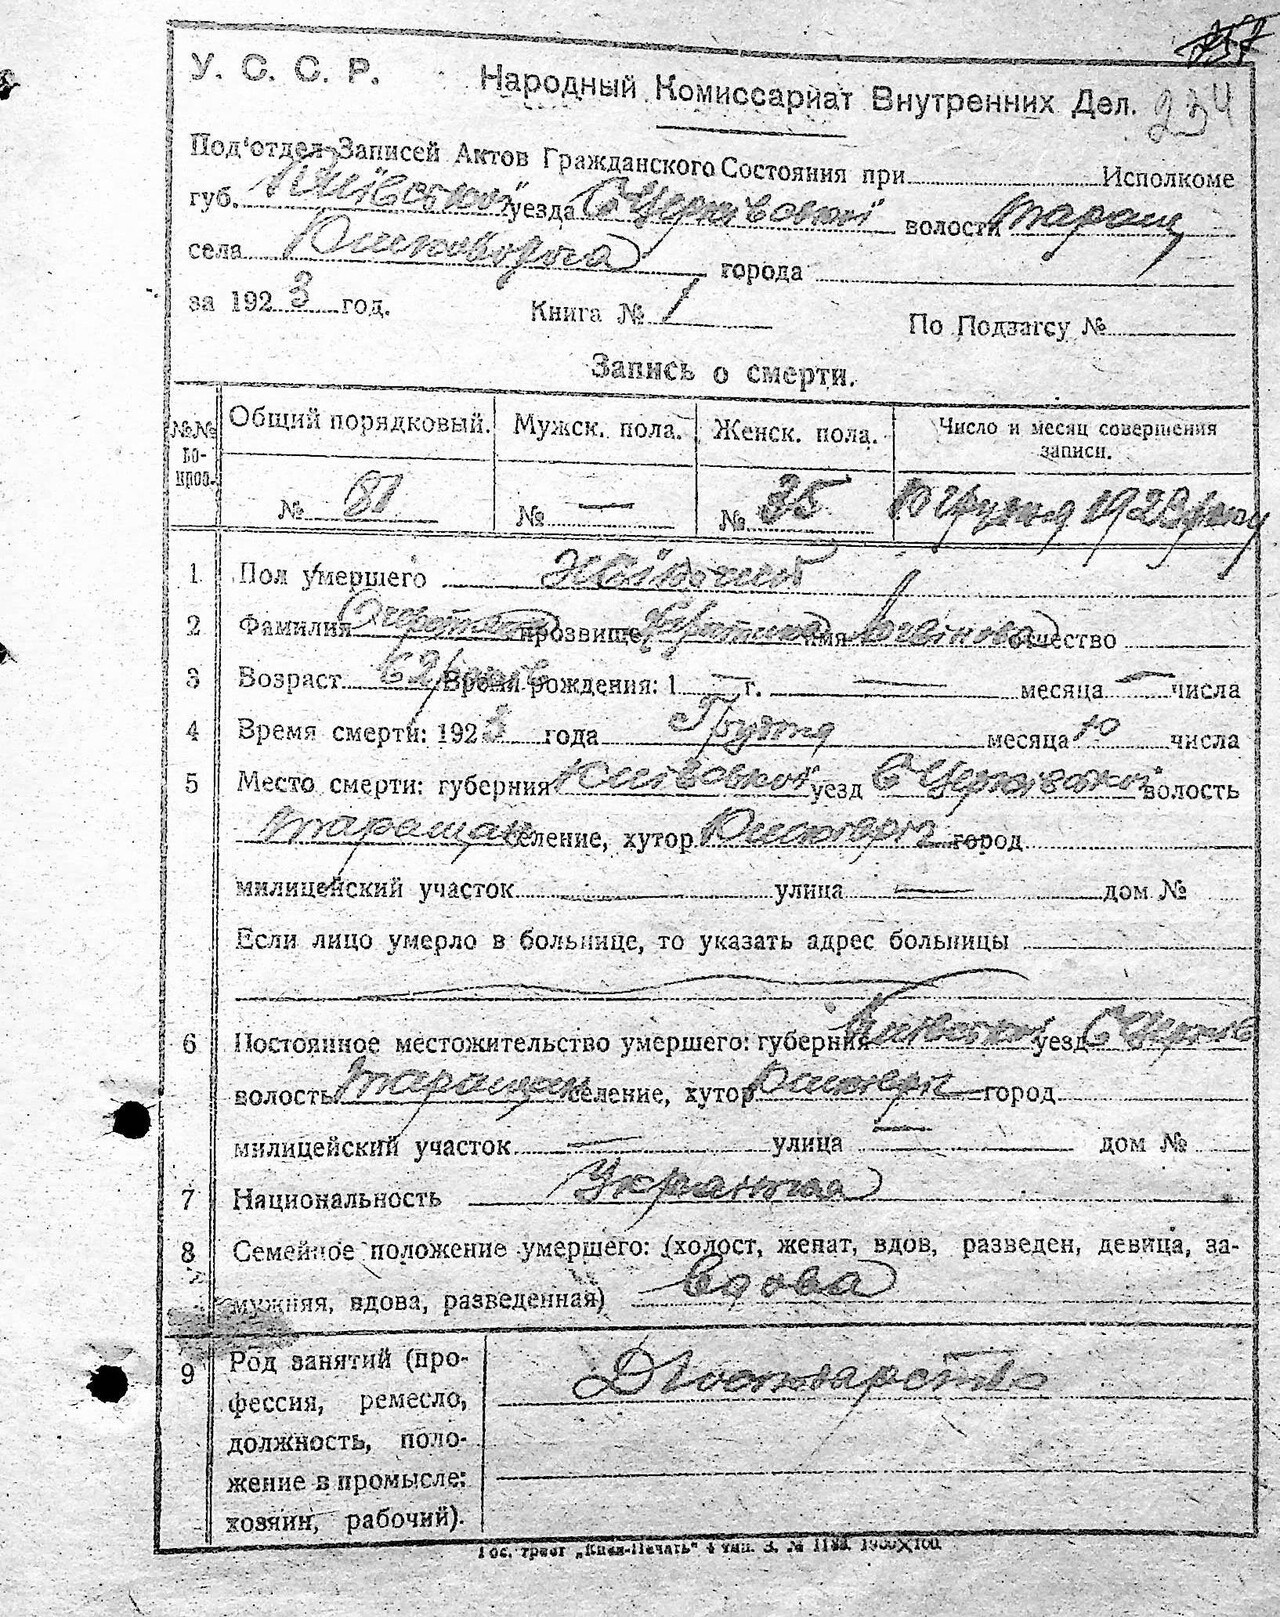 У. С. С. Р. Народный Комиссариат Внутренних Дел. 234
Под'отдел Записей Актов Гражданского Состояния при Исполкоме
губ. Київської уезда Б Церківської волости Таращ
села города
за 1923 год. Книга № 1 По Подзагсу №
Запись о смерти.
№№ вопрос. Общий порядковый. Мужск. пола. Женск. пола. Число и месяц совершения записи.
№ 81 № — № 35 10 грудня 1923 року
1 Пол умершего жіночий
2 Фамилия прозвище имя отчество
3 Возраст 62 років Время рождения: 1 — г. — месяца — числа
4 Время смерти: 1923 года Грудня месяца 10 числа
5 Место смерти: губерния Київської уезд Б Церківської волость
Таращан селение, хутор город
милицейский участок — улица — дом №
Если лицо умерло в больнице, то указать адрес больницы
6 Постоянное местожительство умершего: губерния Київської уезд Б Церків
волость Таращан селение, хутор город
милицейский участок — улица — дом №
7 Национальность Українка
8 Семейное положение умершего: (холост, женат, вдов, разведен, девица, за-
мужняя, вдова, разведенная) Вдова
9 Род занятий (про-
фессия, ремесло,
должность, поло-
жение в промысле:
хозяин, рабочий).
Гос. трест „Киев-Печать" 4 тип. З. №